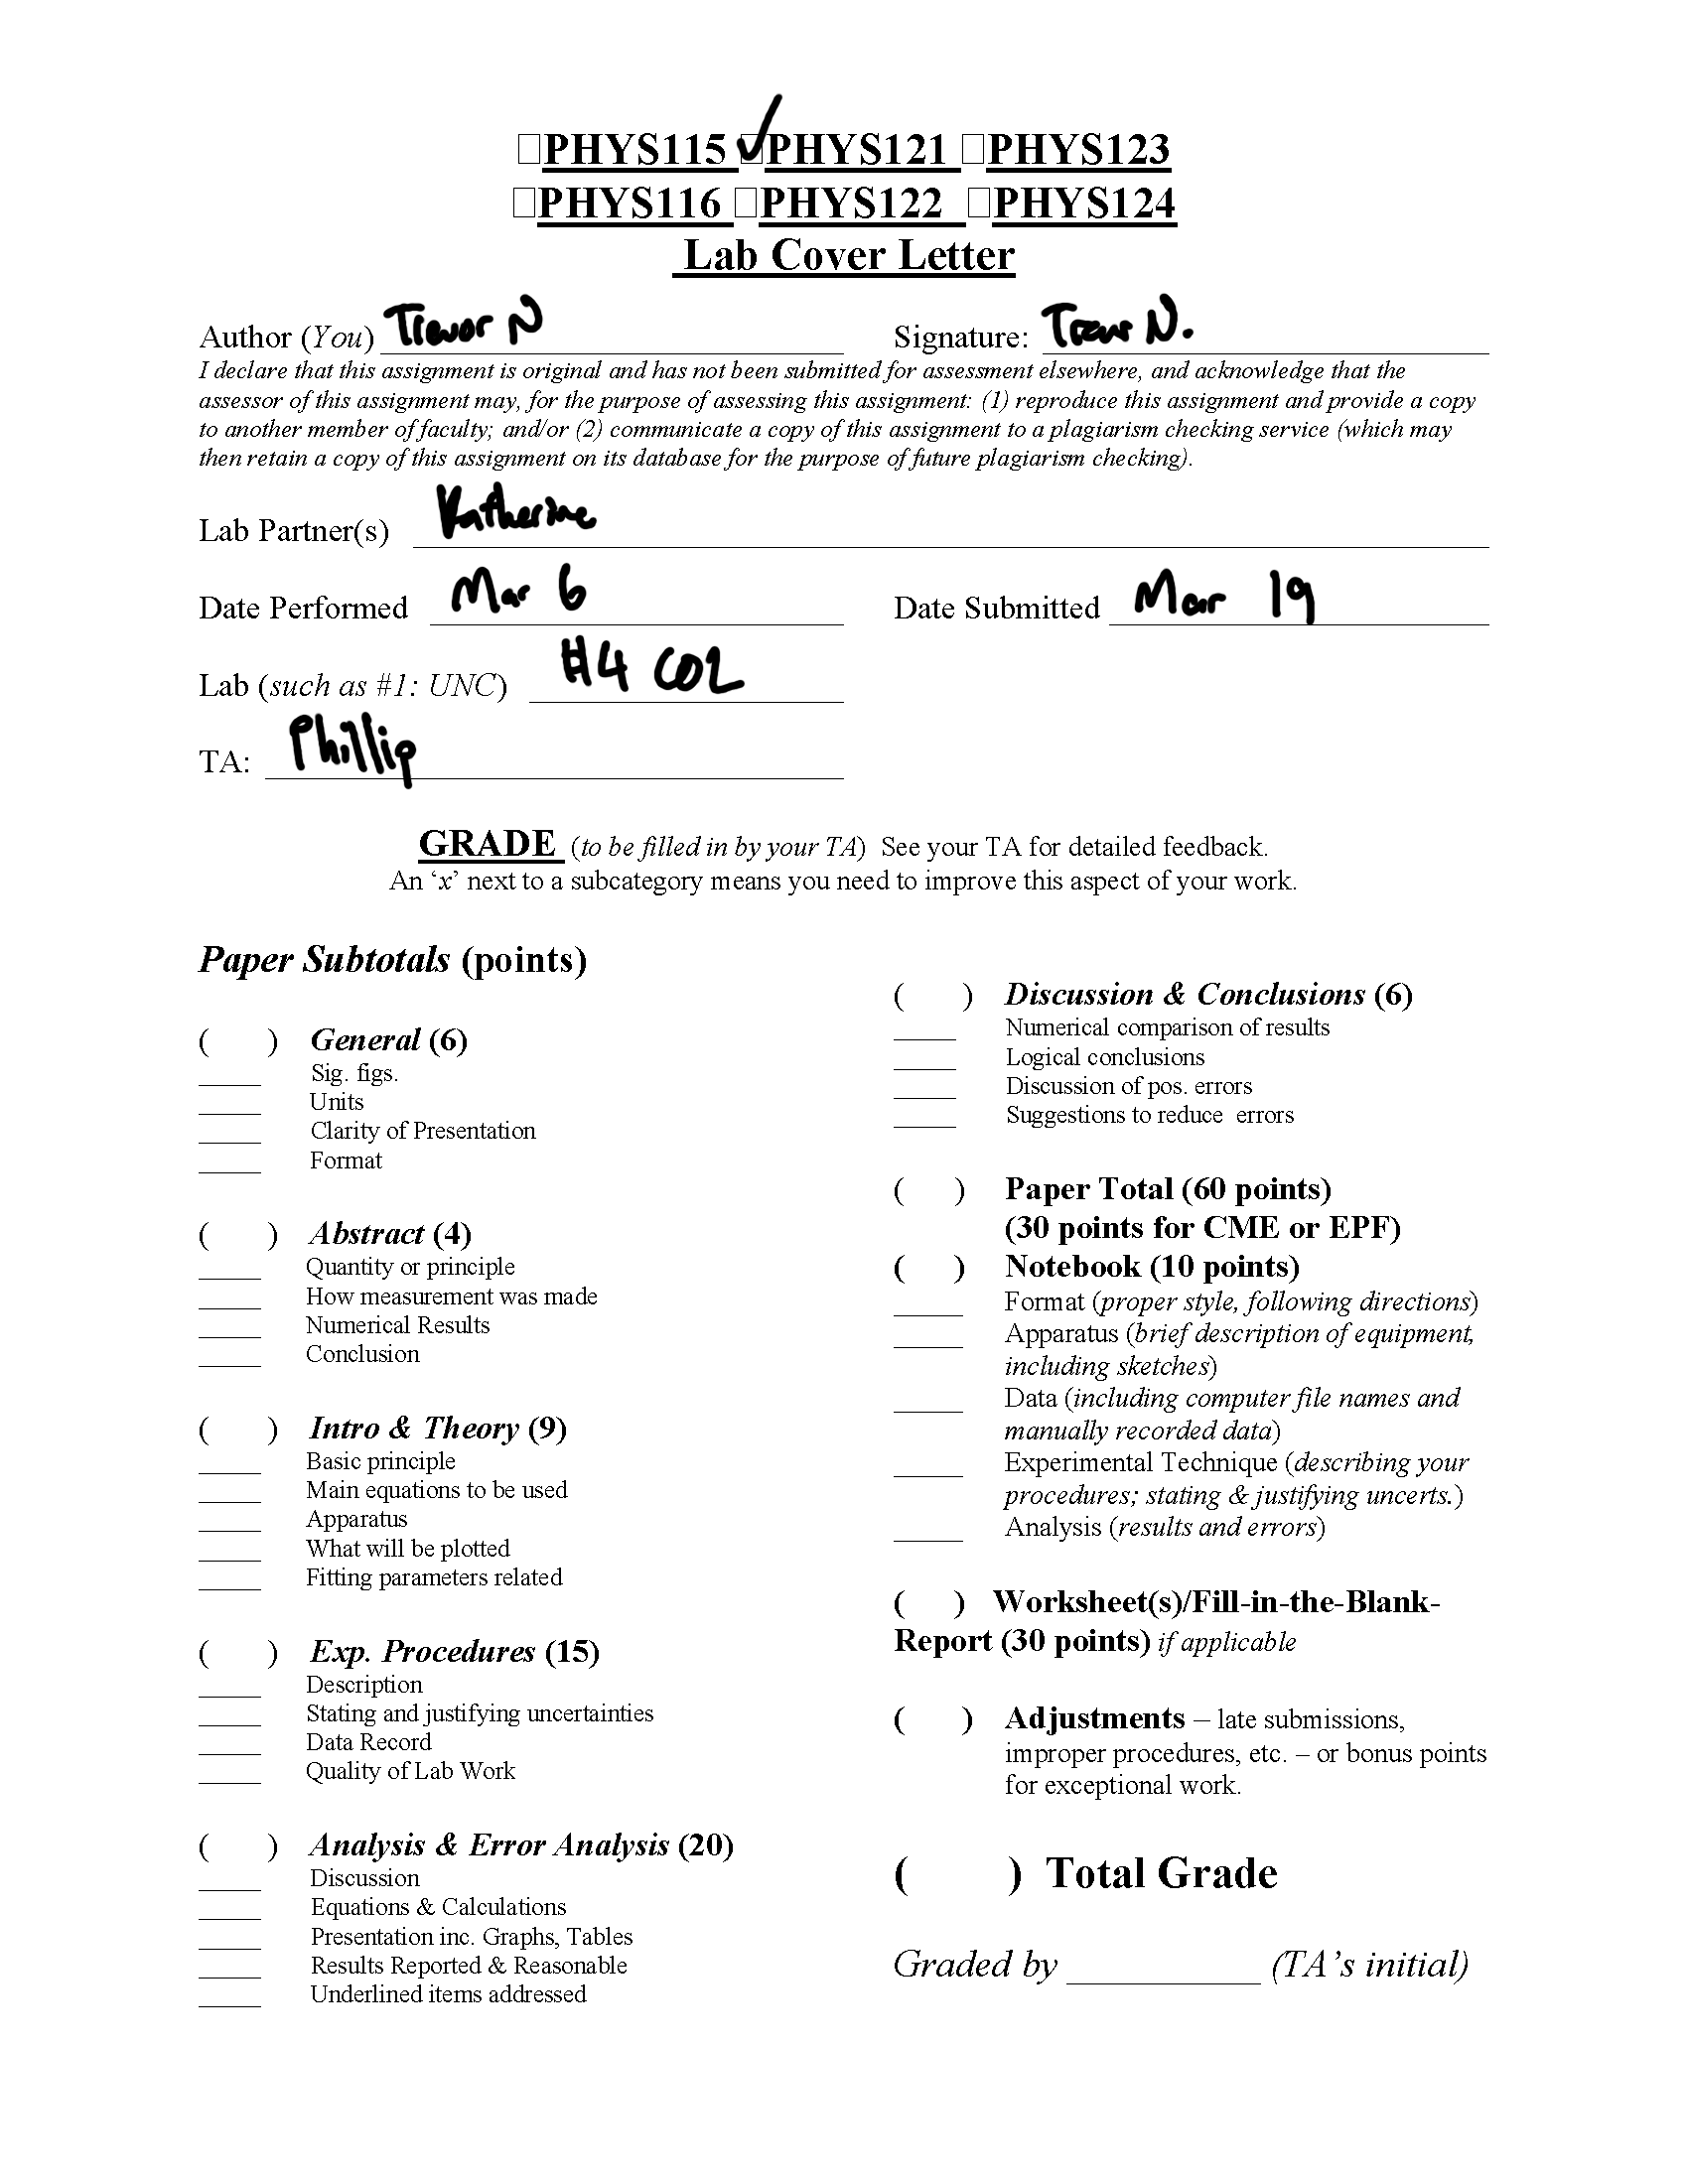 □PHYS115 □PHYS121 □PHYS123
□PHYS116 □PHYS122 □PHYS124
Lab Cover Letter
Author (You) Trevor N Signature: Trevor N.
I declare that this assignment is original and has not been submitted for assessment elsewhere, and acknowledge that the
assessor of this assignment may, for the purpose of assessing this assignment: (1) reproduce this assignment and provide a copy
to another member of faculty; and/or (2) communicate a copy of this assignment to a plagiarism checking service (which may
then retain a copy of this assignment on its database for the purpose of future plagiarism checking).
Lab Partner(s) Katherine
Date Performed Mar 6 Date Submitted Mar 19
Lab (such as #1: UNC) #4 COL
TA: Phillip
GRADE (to be filled in by your TA) See your TA for detailed feedback.
An ‘x’ next to a subcategory means you need to improve this aspect of your work.
Paper Subtotals (points)
( ) General (6)
Sig. figs.
Units
Clarity of Presentation
Format
( ) Abstract (4)
Quantity or principle
How measurement was made
Numerical Results
Conclusion
( ) Intro & Theory (9)
Basic principle
Main equations to be used
Apparatus
What will be plotted
Fitting parameters related
( ) Exp. Procedures (15)
Description
Stating and justifying uncertainties
Data Record
Quality of Lab Work
( ) Analysis & Error Analysis (20)
Discussion
Equations & Calculations
Presentation inc. Graphs, Tables
Results Reported & Reasonable
Underlined items addressed
( ) Discussion & Conclusions (6)
Numerical comparison of results
Logical conclusions
Discussion of pos. errors
Suggestions to reduce errors
( ) Paper Total (60 points)
(30 points for CME or EPF)
( ) Notebook (10 points)
Format (proper style, following directions)
Apparatus (brief description of equipment,
including sketches)
Data (including computer file names and
manually recorded data)
Experimental Technique (describing your
procedures; stating & justifying uncerts.)
Analysis (results and errors)
( ) Worksheet(s)/Fill-in-the-Blank-
Report (30 points) if applicable
( ) Adjustments – late submissions,
improper procedures, etc. – or bonus points
for exceptional work.
( ) Total Grade
Graded by __________ (TA’s initial)